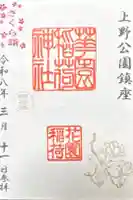 上野公園鎮座
花園
稲荷
神社
花園
稲荷
さくら詣
令和八年三月十一日参拝